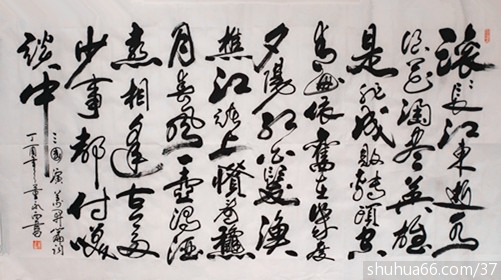 滚滚长江东逝水
浪花淘尽英雄
是非成败转头空
青山依旧在几度
夕陽红白髮渔
樵江渚上惯看秋
月春风一壶浊酒
喜相逢古今多
少事都付笑
谈中
三国演义开篇词
丁酉年
shuhua66.com/37